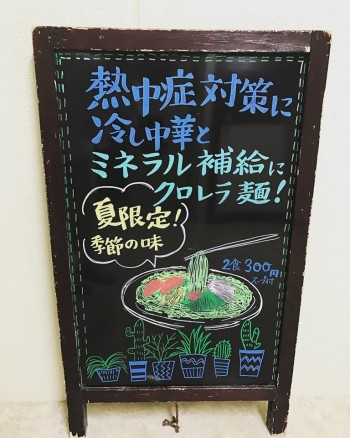 熱中症対策に
冷し中華と
ミネラル補給に
クロレラ麺!
夏限定!
季節の味
2食300円
スープ付